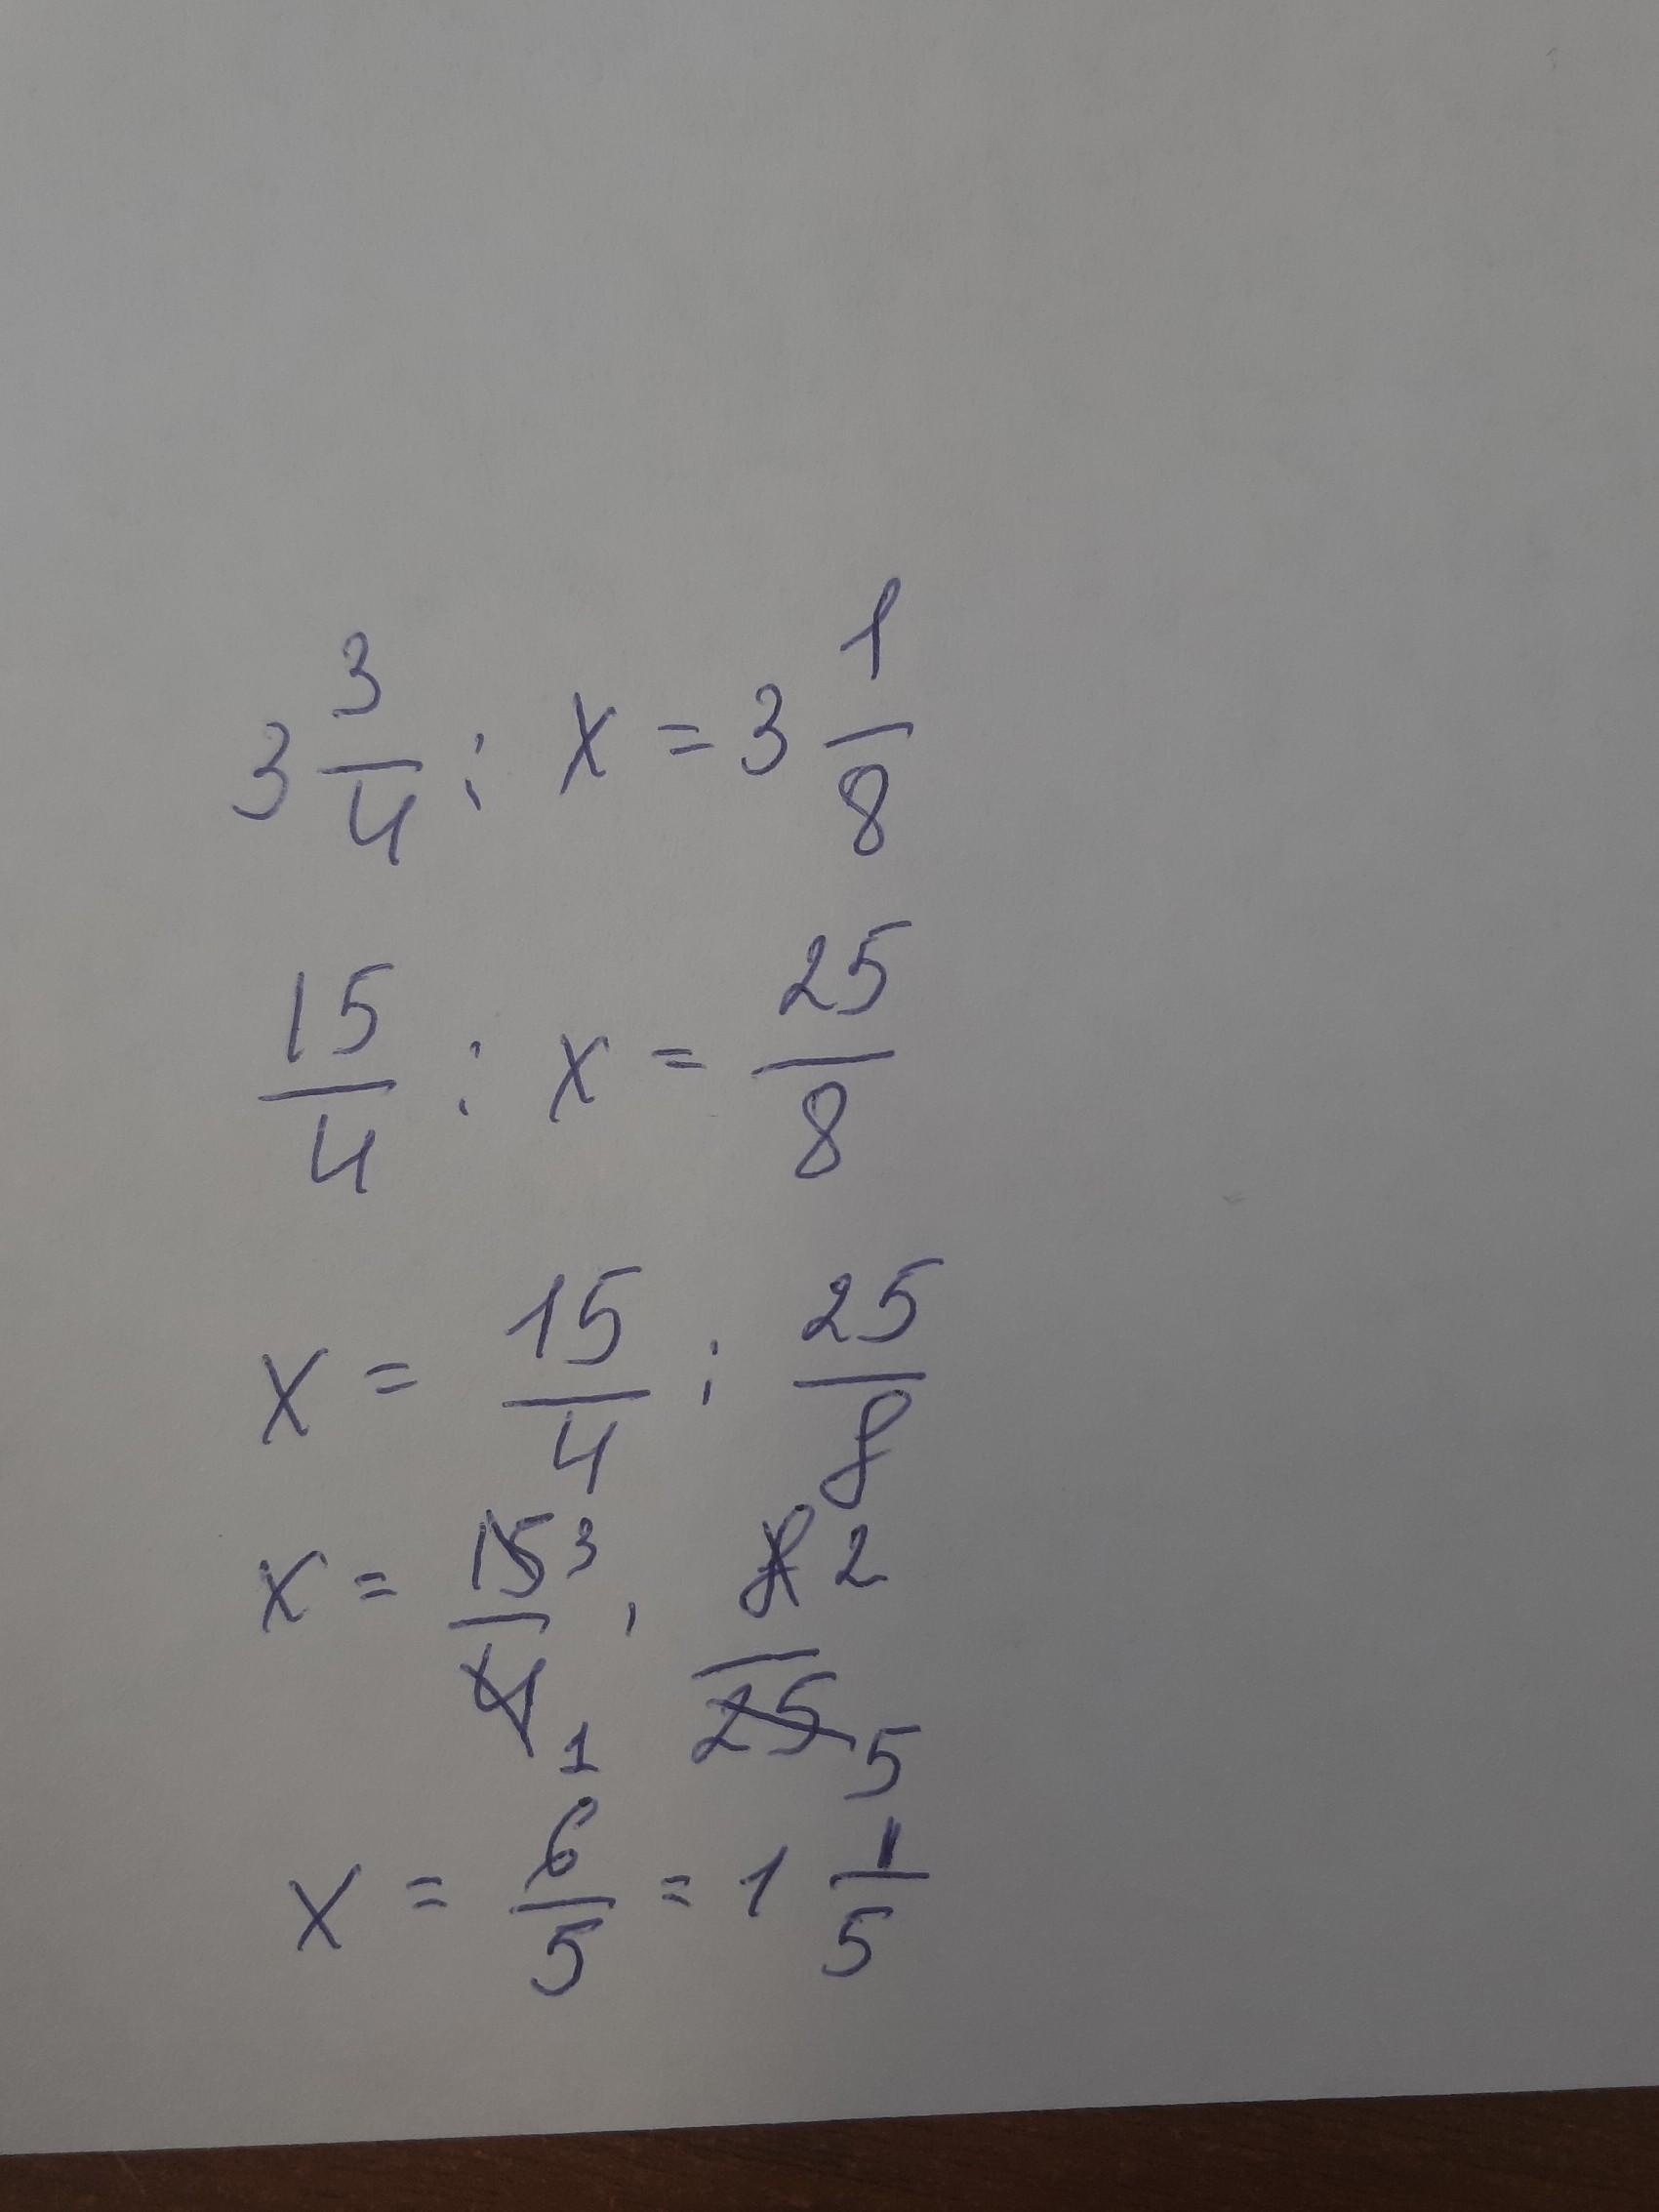 3 3/4 : x = 3 1/8
15/4 : x = 25/8
x = 15/4 : 25/8
x = 15 3/4 1 · 8 2/25 5
x = 6/5 = 1 1/5